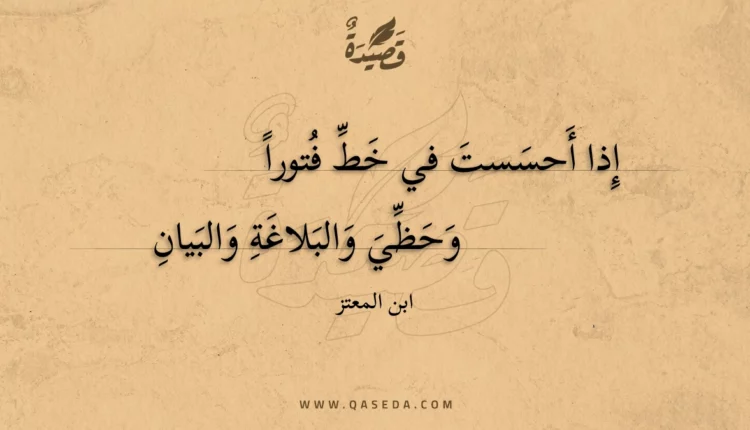 قَصِيْدَةٌ
إِذا أَحسَستَ في خَطِّ فُتوراً
وَحَظِّيَ وَالبَلاغَةِ وَالبَيانِ
ابن المعتز
WWW.QASEDA.COM